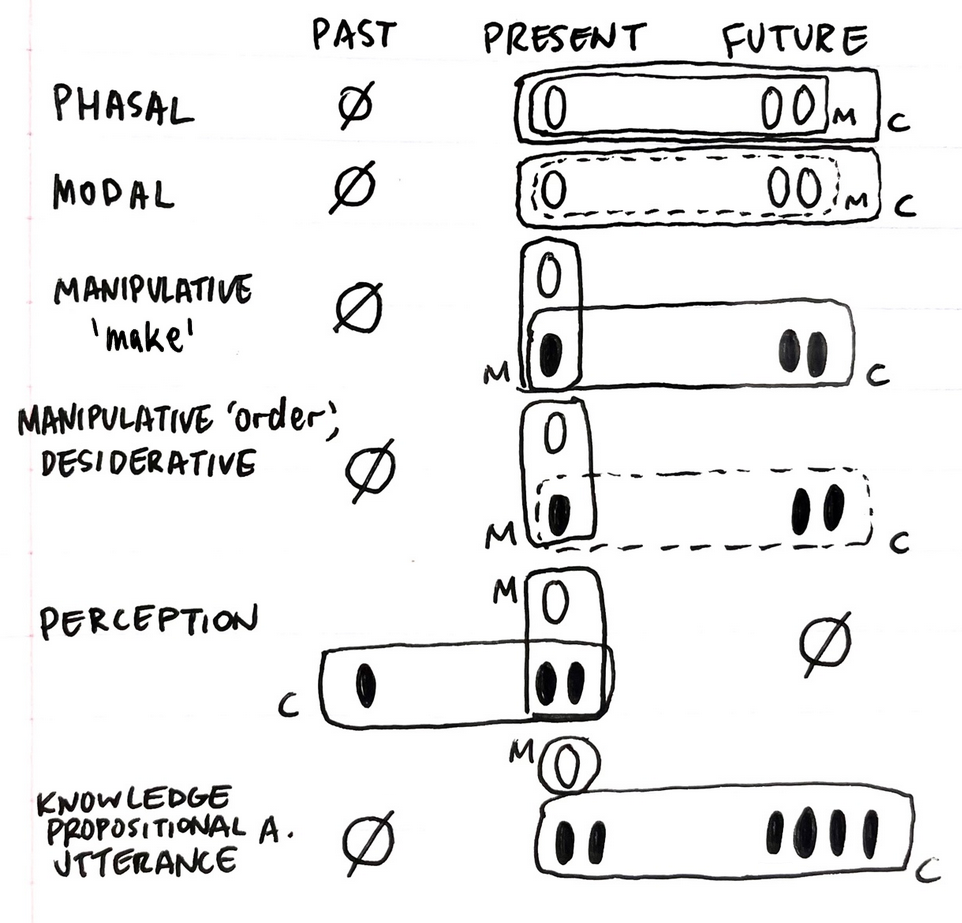 PAST PRESENT FUTURE
PHASAL Ø M C
MODAL Ø M C
MANIPULATIVE
'make' Ø
M C
MANIPULATIVE 'order',
DESIDERATIVE Ø
M C
M
PERCEPTION Ø
C
M
KNOWLEDGE
PROPOSITIONAL A. Ø
UTTERANCE
C